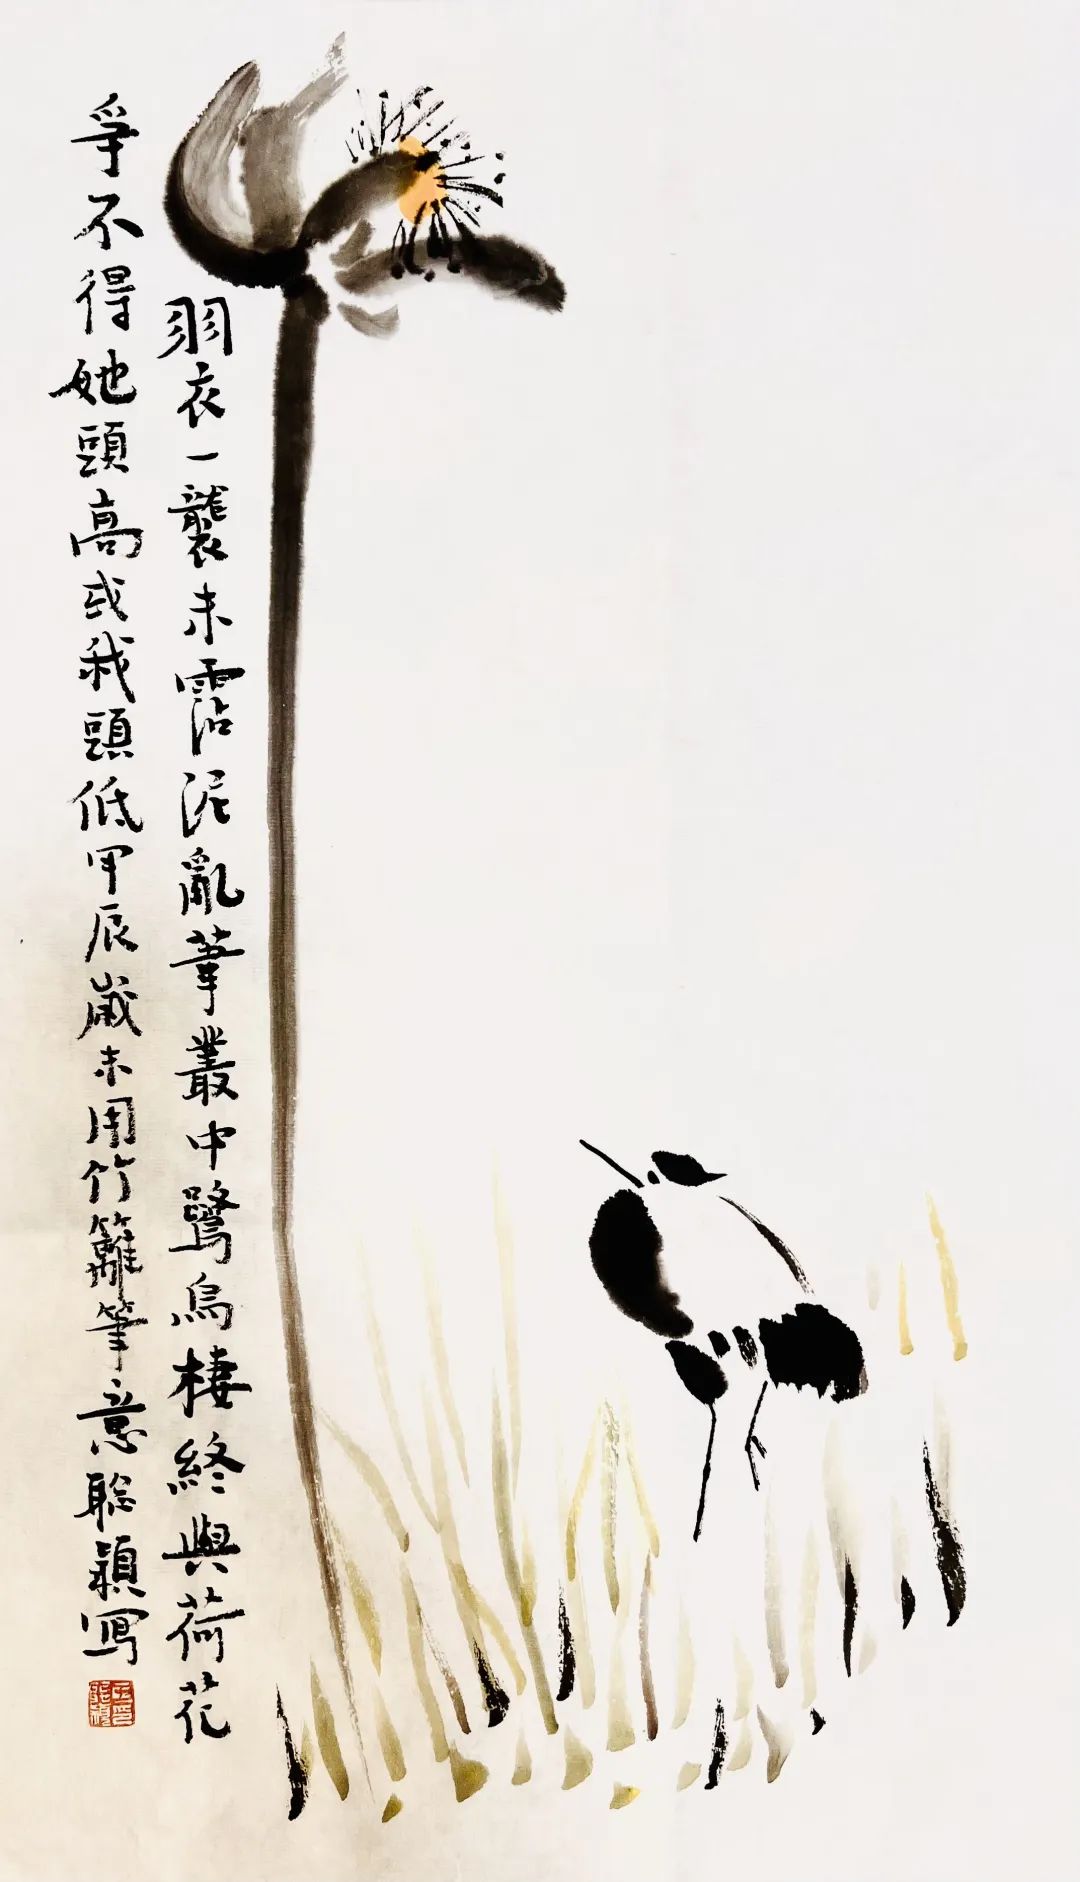 羽衣一襲未霑泥亂葦叢中鷺鳥棲終與荷花
爭不得她頭高或我頭低甲辰歲末用竹籬筆意聰穎寫